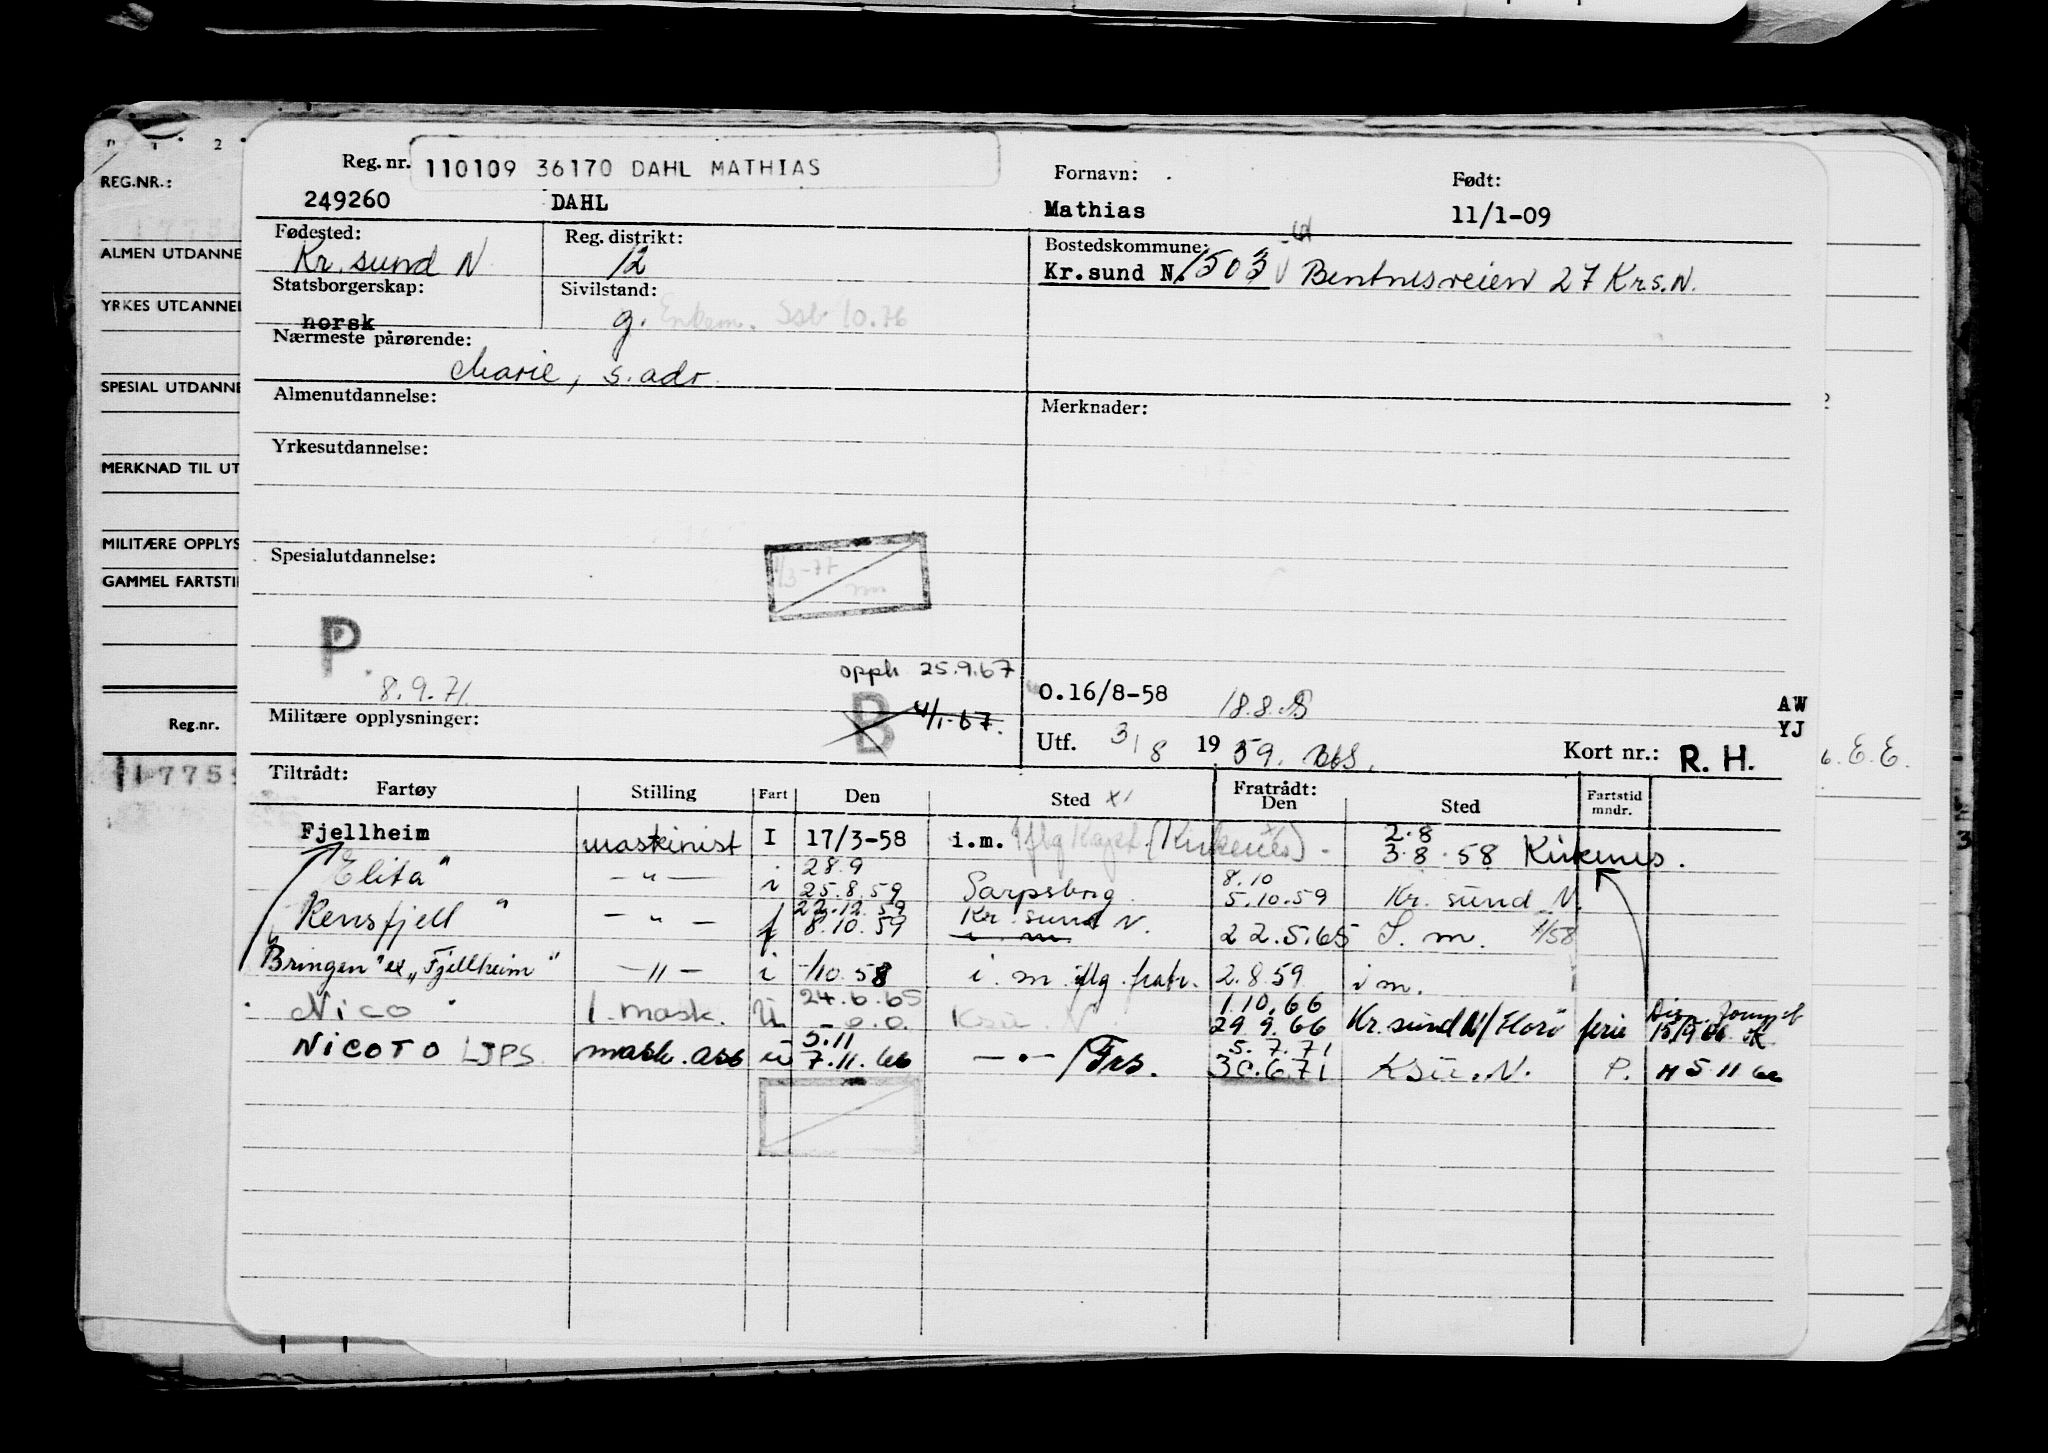 REG.NR.:
ALMEN UTDANNE
YRKES UTDANNEL
SPESIAL UTDANNE
MERKNAD TIL UT
MILITÆRE OPPLYS
GAMMEL FARTSTI
Reg.nr.
Reg. nr. 110109 36170 DAHL MATHIAS Fornavn: Født:
249260 DAHL Mathias 11/1-09
Fødested: Reg. distrikt: Bostedskommune:
Kr. sund N 12 Kr.sund N. 1503 Bentnesveien 27 Kr.s.N.
Statsborgerskap: Sivilstand:
norsk g. Enkem. Ssb 10.76
Nærmeste pårørende:
Marie, s. adr.
Almenutdannelse: Merknader:
Yrkesutdannelse:
Spesialutdannelse:
P
8.9.71. opph 25.9.67 O.16/8-58 18.8. AW
Militære opplysninger: B 4/1-67. YJ
Utf. 3/8 1959. Kort nr.: R. H. E. E.
Tiltrådt: Fratrådt:
Fartøy Stilling Fart Den Sted Den Sted Fartstid mndr.
Fjellheim maskinist I 17/3-58 i.m. iflg (Kirkenes). 2.8 3.8.58 Kirkenes.
Elita" —"— i 28.9 25.8.59 Sarpsborg 8.10 5.10.59 Kr. sund N.
Rensfjell " —"— f 22.12.59 8.10.59 Kr. sund N. i m 22.5.65 I. m. 7/58
Bringen" ex "Fjellheim" —"— i -/10.58 i. m iflg. fratr. 2.8.59 i m.
Nico 1 mask. U 24.6.65 - o.o. Ksu N 1.10.66 29 9.66 Kr. sund N/Florø ferie 15/9 66
NICOTO LJPS mask. ass ü 5.11 7.11.66 —"—/Frs. 5.7.71 30.6.71 KSU.N. P. M 5.11 66